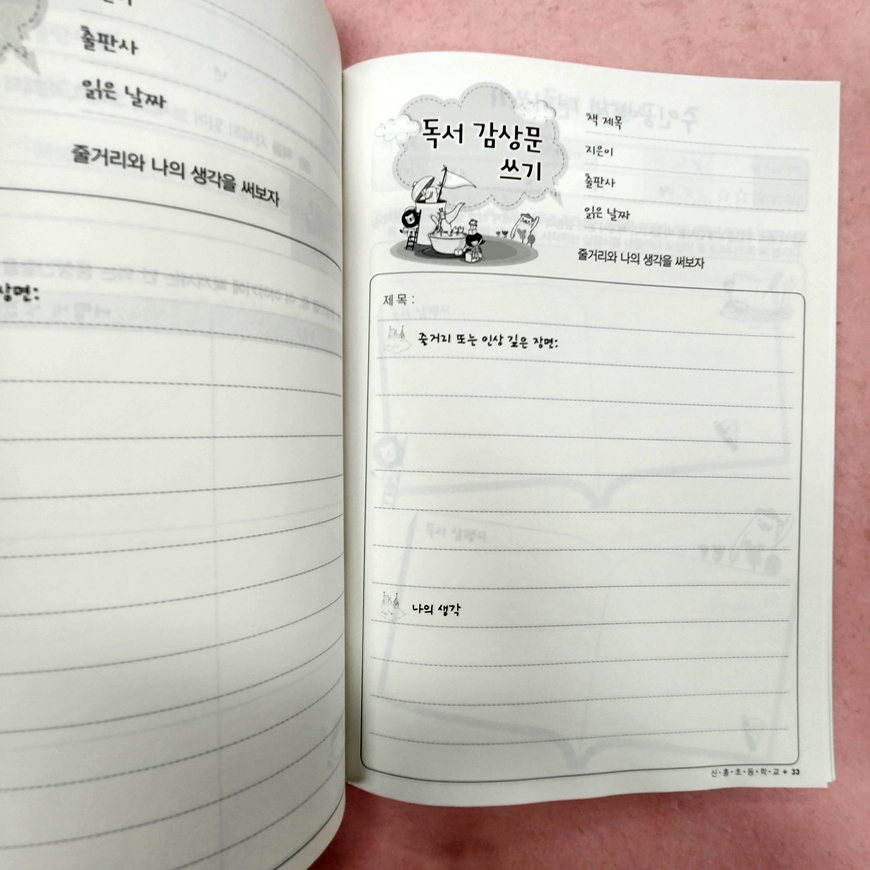 출판사
읽은 날짜
줄거리와 나의 생각을 써보자
장면:
독서 감상문
쓰기
책 제목
지은이
출판사
읽은 날짜
줄거리와 나의 생각을 써보자
제목 :
줄거리 또는 인상 깊은 장면:
나의 생각
신·흥·초·등·학·교 ● 33